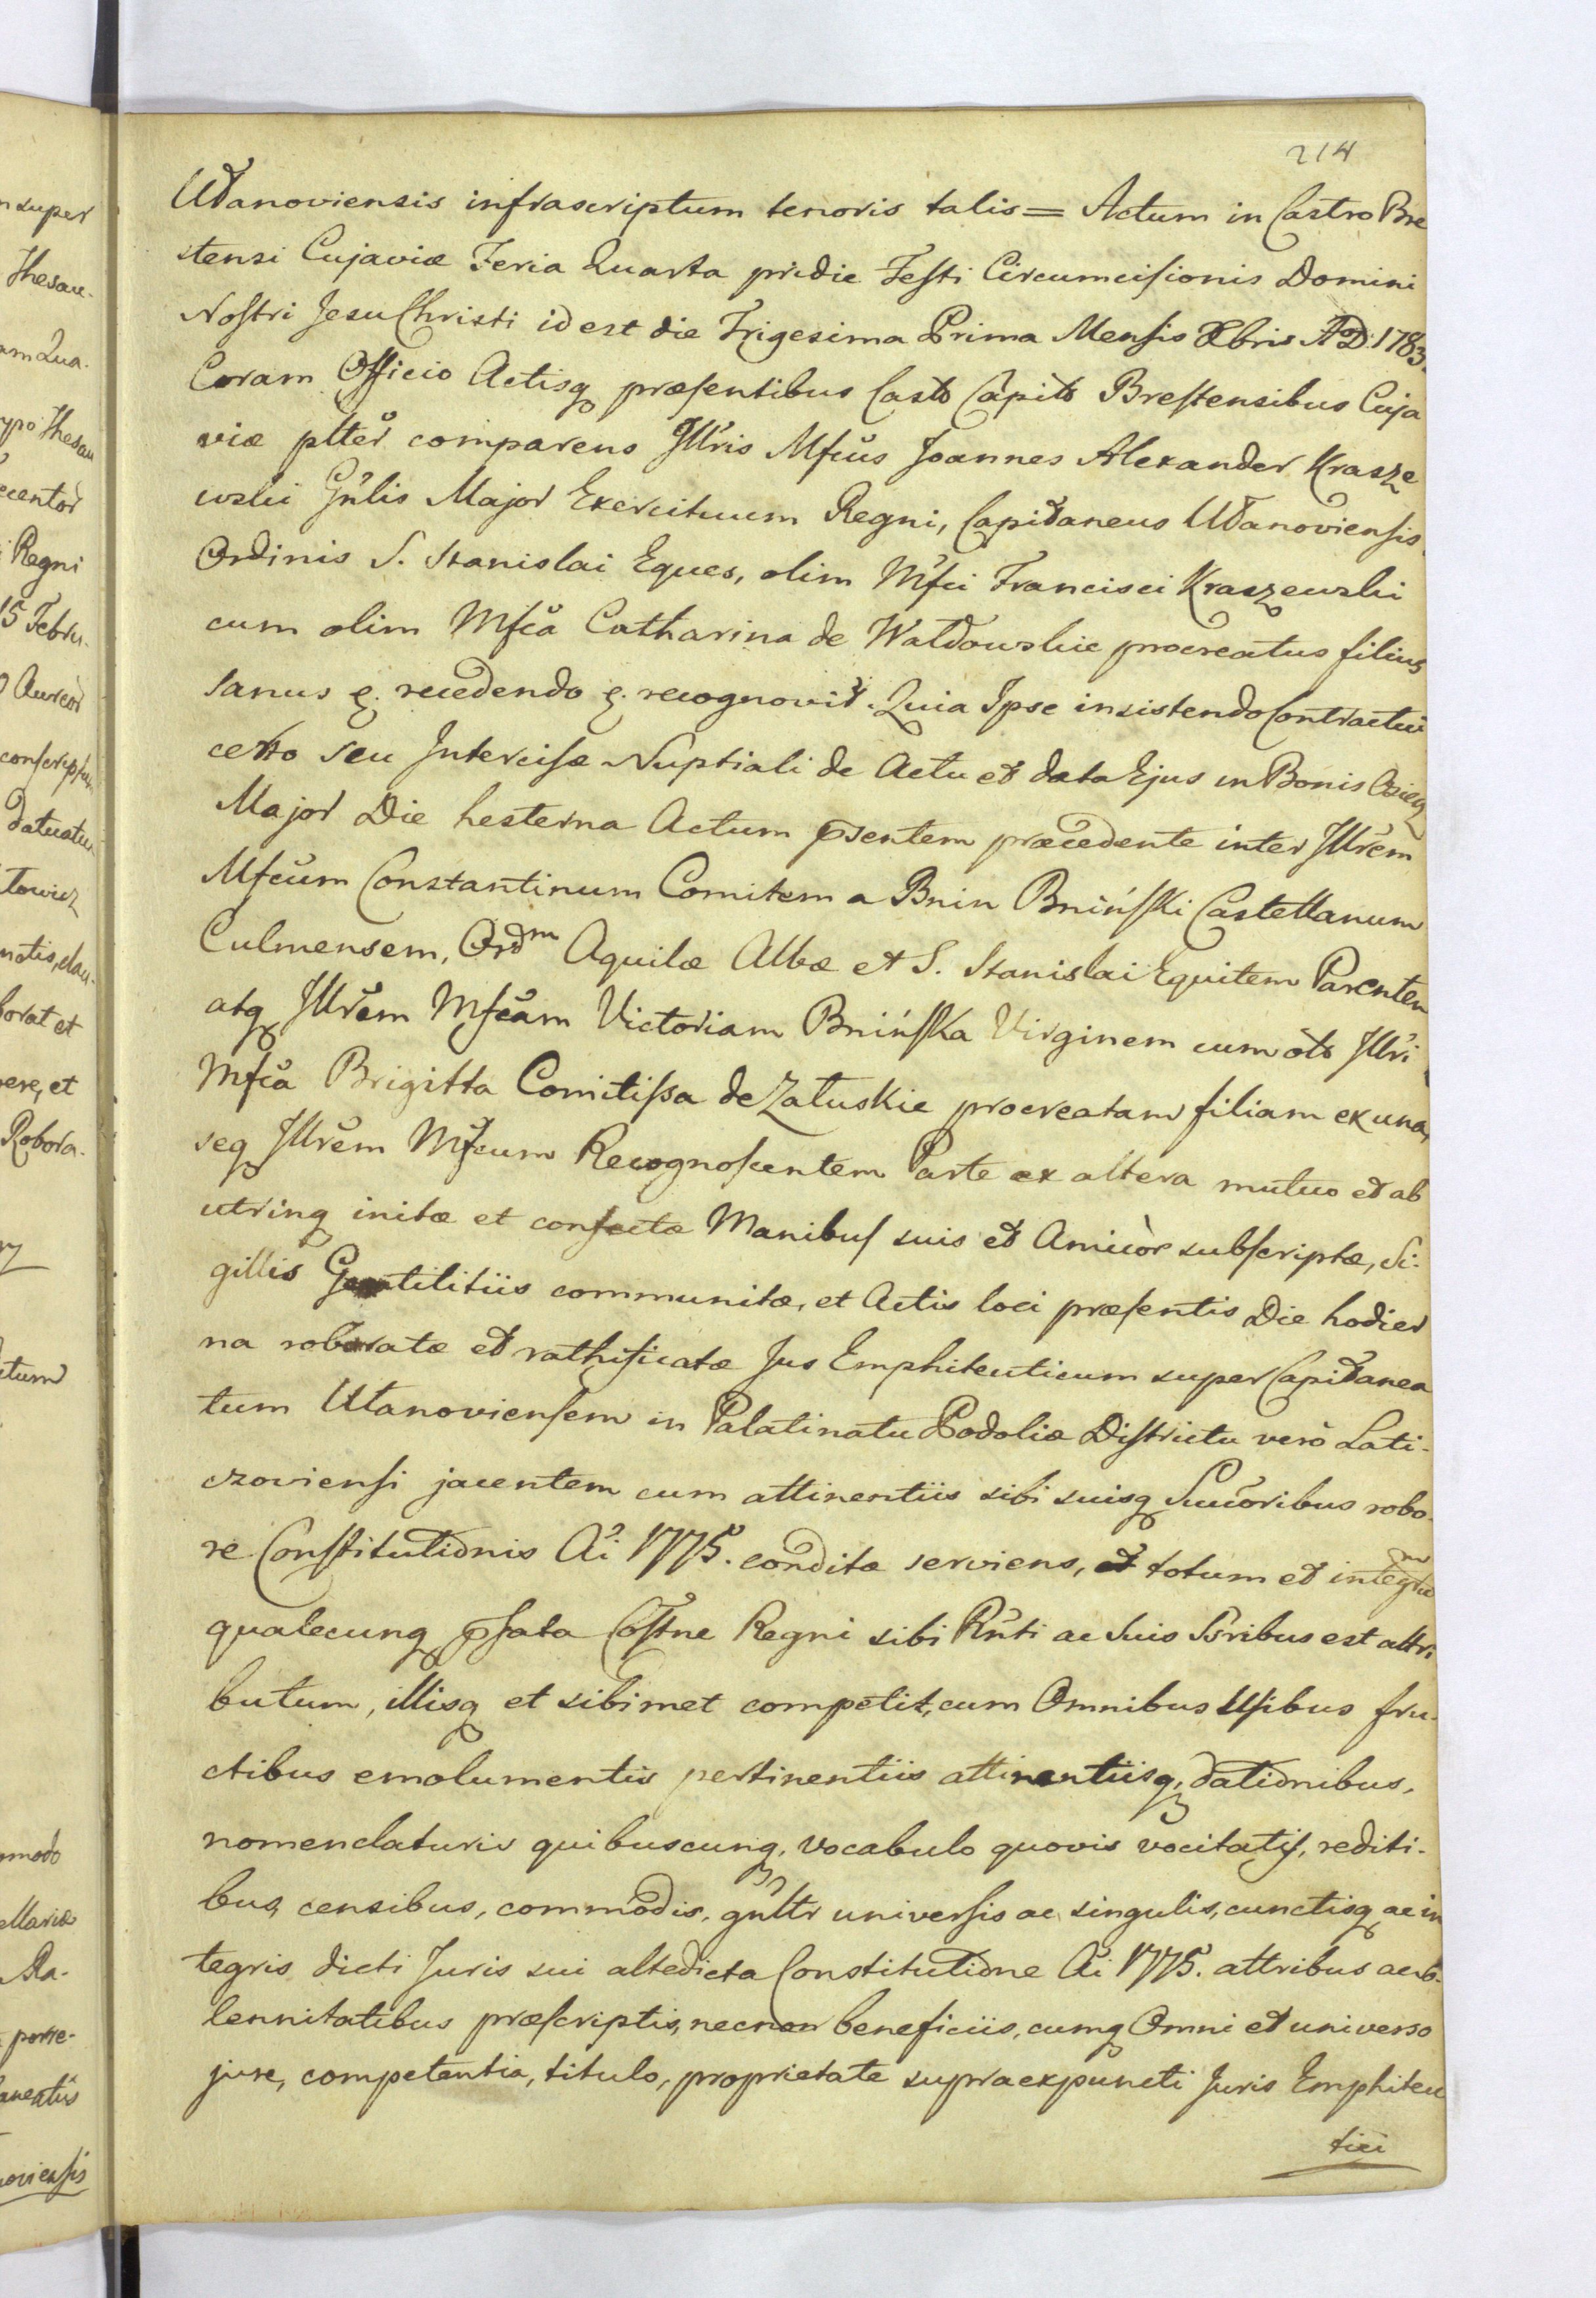 214
Utanoviensis infrascriptum tenoris talis = Actum in Castro Bre
stensi Cujaviæ Feria Quarta pridie Festi Circumcisionis Domini
Nostri Jesu Christi id est die Trigesima Prima Mensis Xbris A°D: 1783.
Coram Officio Actisq præsentibus Castr Capit Brestensibus Cuja
viæ plter comparens Illris Mfcus Joannes Alexander Krasze
wski Gnlis Major Exercituum Regni, Capitaneus Utanoviensis
Ordinis S. Stanislai Eques, olim Mfci Francisci Kraszewski
cum olim Mfca Catharina de Wałdowskie procreatus filius
sanus p. recedendo p. recognovit. Quia Ipse insistendo Contractui
certo seu Intercisæ Nuptiali de Actu et data Ejus in Bonis
Major Die hesterna Actum psentem præcedente inter Illrem
Mfcum Constantinum Comitem a Bnin Bniński Castellanum
Culmensem, Ordm Aquilæ Albæ et S. Stanislai Equitem Parentem
atq Illrem Mfcam Victoriam Bnińska Virginem cum olt Illri
Mfca Brigitta Comitissa de Załuskie procreatam filiam ex una,
seq Illrem Mfcum Recognoscentem Parte ex altera mutuo et ab
utrinq initæ et confectæ Manibus suis et Amicor subscriptæ, Si-
gillis Gentilitiis communitæ, et Actis loci præsentis Die hodier
na roboratæ et rathificatæ Jus Emphiteuticum super Capitanea
tum Utanoviensem in Palatinatu Podoliæ Districtu verò Lati-
czoviensi jacentem cum attinentiis sibi suisq Succoribus robo
re Constitutionis Ai 1775. conditæ serviens, et totum et integrum
qualecunq psata Costne Regni sibi Rnti ac Suis Srribus est attri
butum, illisq et sibimet competit, cum Omnibus Usibus fru-
ctibus emolumentis pertinentiis attinentiisq, dationibus,
nomenclaturis quibuscunq, vocabulo quovis vocitatis, rediti-
bus, censibus, commodis, gnltr universis ac singulis, cunctisq ac in
tegris dicti Juris sui altedicta Constitutione Ai 1775. attribus ac so-
lennitatibus præscriptis, necnon beneficiis, cumq Omni et universo
jure, competentia, titulo, proprietate supraexpuncti Juris Emphiteu
tici